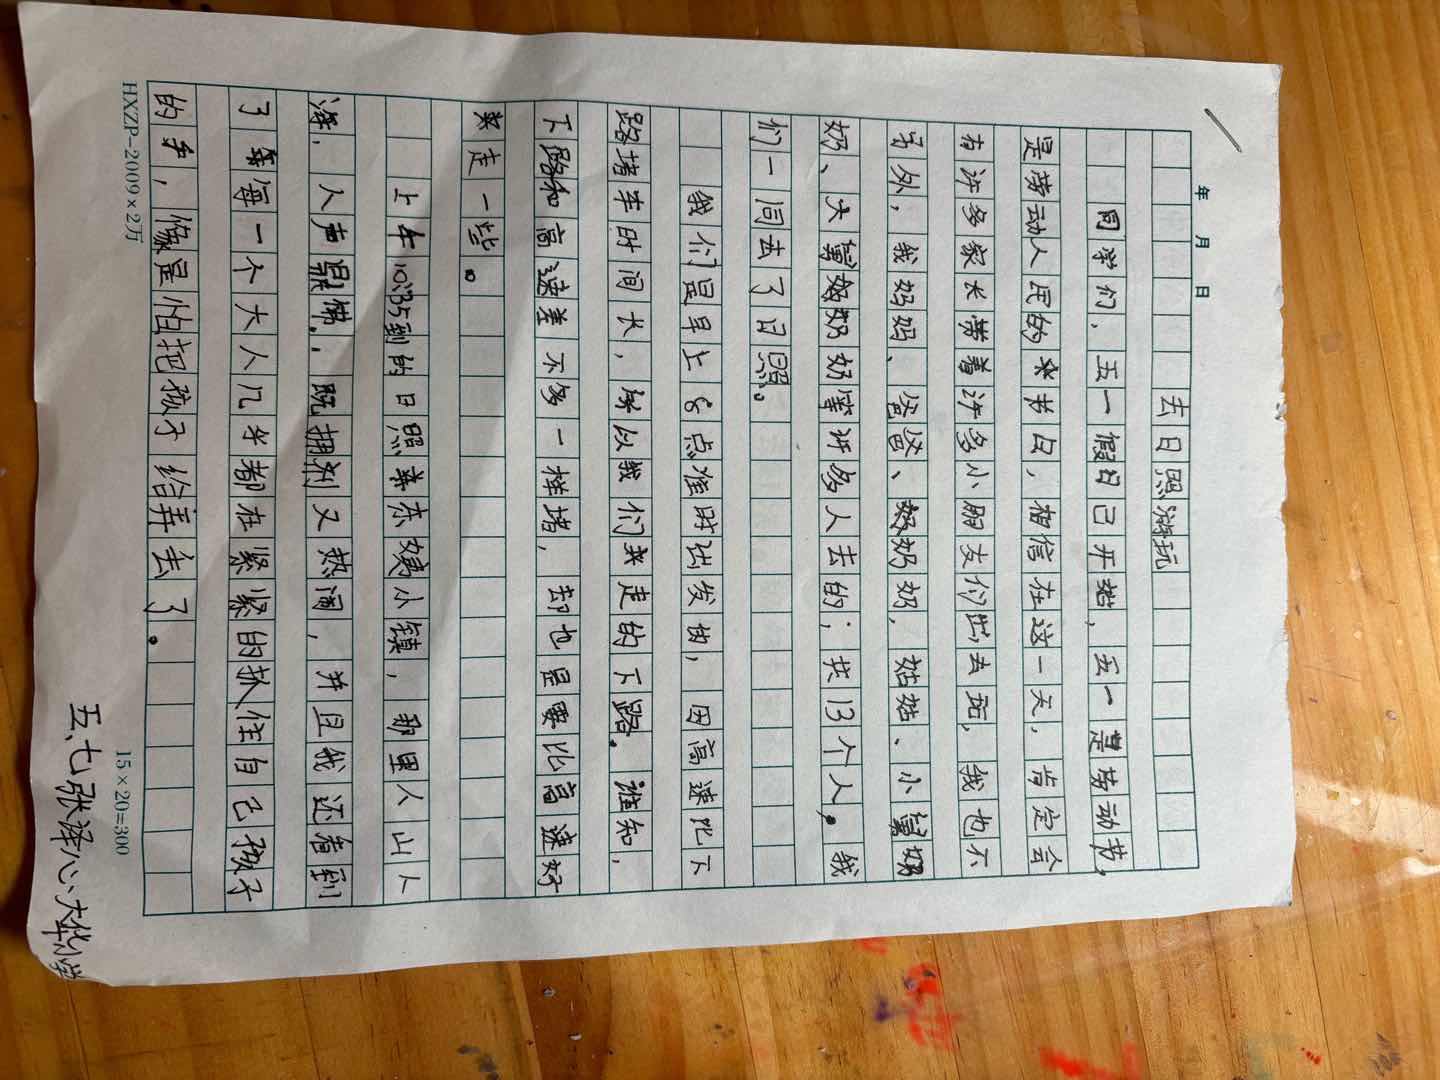 年 月 日
去日照游玩
同学们，五一假日已开始，五一是劳动节，
是劳动人民的节日，相信在这一天，肯定会
有许多家长带着许多小朋友们出去玩，我也不
另外，我妈妈、爸爸、奶奶、姑姑、小舅奶
奶、大舅奶奶等许多人去的；共13个人，我
们一同去了日照。
我们是早上6点准时出发的，因高速比下
路堵车时间长，所以我们走的下路。谁知，
下路和高速差不多一样堵，却也是要比高速好
走一些。
上午10:35到的日照东夷小镇，那里人山人
海，人声鼎沸，既拥挤又热闹，并且我还看到
了每一个大人几乎都在紧紧的抓住自己孩子
的手，像是怕把孩子给弄丢了。
HXZP-2009×2万
15×20=300
五、七张泽心、大华小学